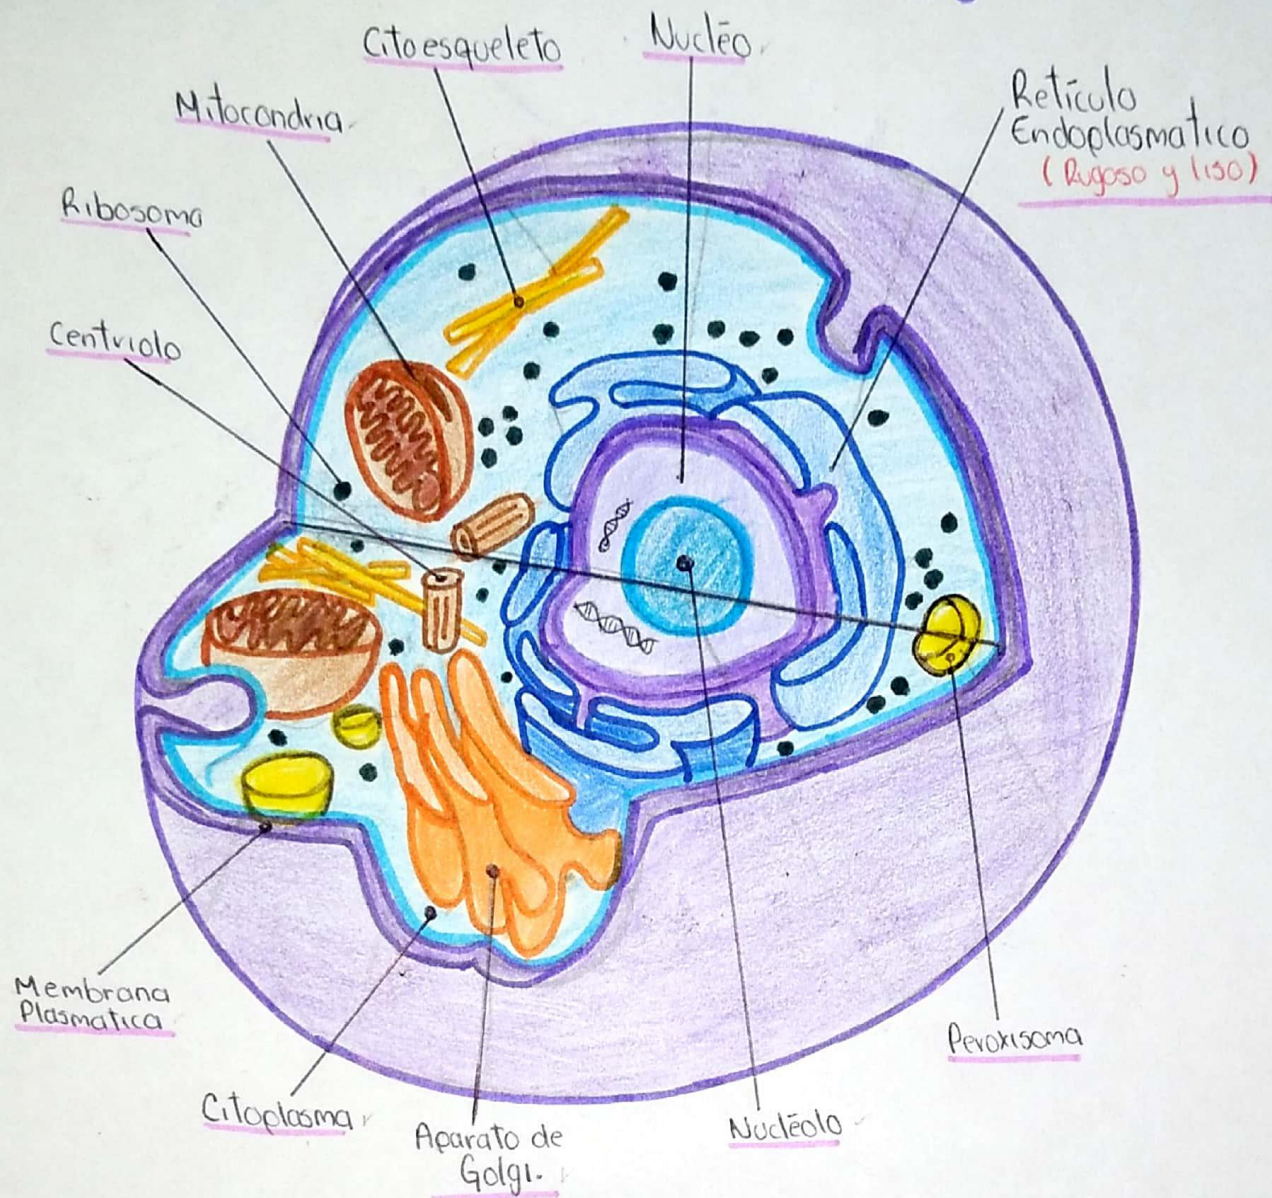 Citoesqueleto
Nucléo
Mitocondria
Retículo
Endoplasmatico
(Rugoso y liso)
Ribosoma
Centriolo
Membrana
Plasmatica
Citoplasma
Aparato de
Golgi.
Nucléolo
Peroxisoma